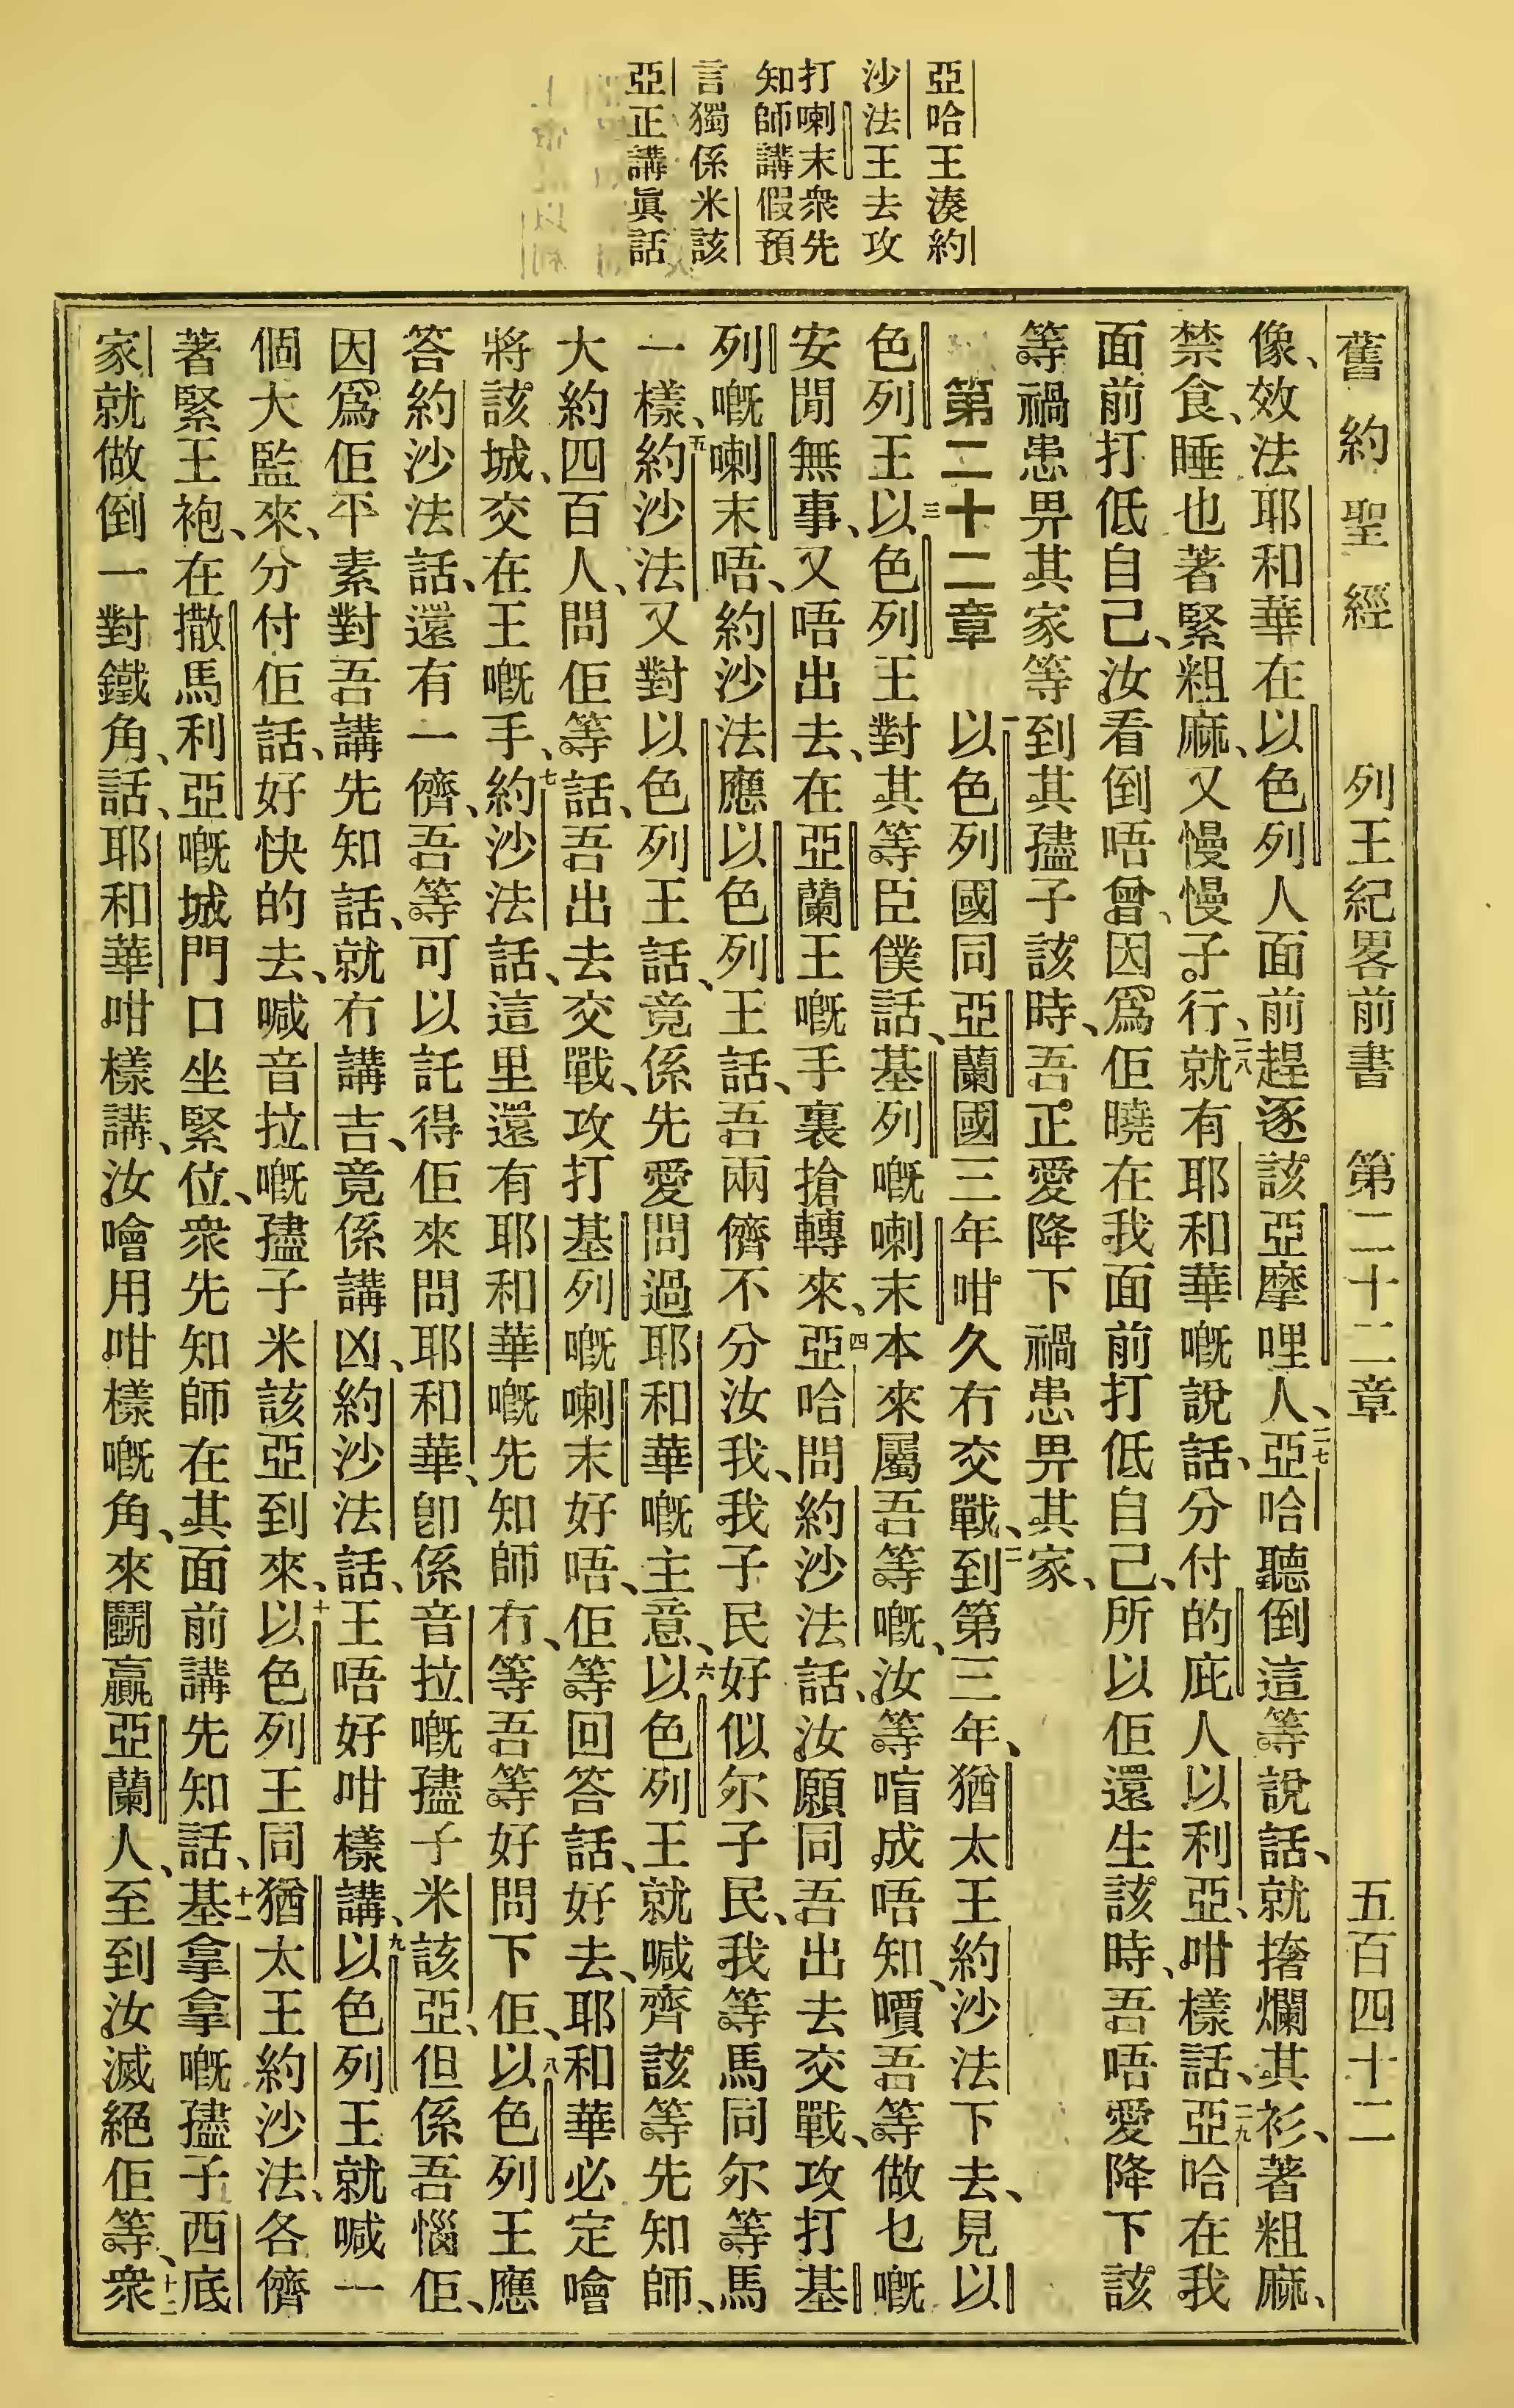 亞哈王湊約
沙法王去攻
打喇末衆先
知師講假預
言獨係米該
亞正講眞話
舊約聖經 列王紀畧前書 第二十二章 五百四十二
像、效法耶和華在以色列人面前趕逐該亞摩哩人、二七亞哈聽倒這等說話、就撦爛其衫、著粗麻、
禁食、睡也著緊粗麻、又慢慢子行、二八就有耶和華嘅說話、分付的庇人以利亞、咁樣話、二九亞哈在我
面前打低自己、汝看倒唔曾、因爲佢曉在我面前打低自己、所以佢還生該時、吾唔愛降下該
等禍患畀其家等到其孻子該時、吾正愛降下禍患畀其家、
第二十二章 一以色列國同亞蘭國三年咁久冇交戰、二到第三年、猶太王約沙法下去、見以
色列王三以色列王對其等臣僕話、基列嘅喇末本來屬吾等嘅、汝等喑成唔知、嘳吾等做乜嘅
安閒無事、又唔出去、在亞蘭王嘅手裏搶轉來、四亞哈問約沙法話、汝願同吾出去交戰、攻打基
列嘅喇末唔、約沙法應以色列王話、吾兩儕不分汝我、我子民好似尔子民、我等馬同尔等馬
一樣、五約沙法又對以色列王話、竟係先愛問過耶和華嘅主意、六以色列王就喊齊該等先知師、
大約四百人、問佢等話、吾出去交戰、攻打基列嘅喇末好唔、佢等回答話、好去、耶和華必定噲
將該城、交在王嘅手、七約沙法話、這里還有耶和華嘅先知師冇、等吾等好問下佢、八以色列王應
答約沙法話、還有一儕、吾等可以託得佢來問耶和華、卽係音拉嘅孻子米該亞、但係吾惱佢、
因爲佢平素對吾講先知話、就冇講吉、竟係講凶、約沙法話、王唔好咁樣講、九以色列王就喊一
個大監來、分付佢話、好快的去、喊音拉嘅孻子米該亞到來、十以色列王同猶太王約沙法、各儕
著緊王袍、在撒馬利亞嘅城門口坐緊位、衆先知師在其面前講先知話、十一基拿拿嘅孻子西底
家就做倒一對鐵角、話、耶和華咁樣講、汝噲用咁樣嘅角、來鬭贏亞蘭人、至到汝滅絕佢等、十二衆